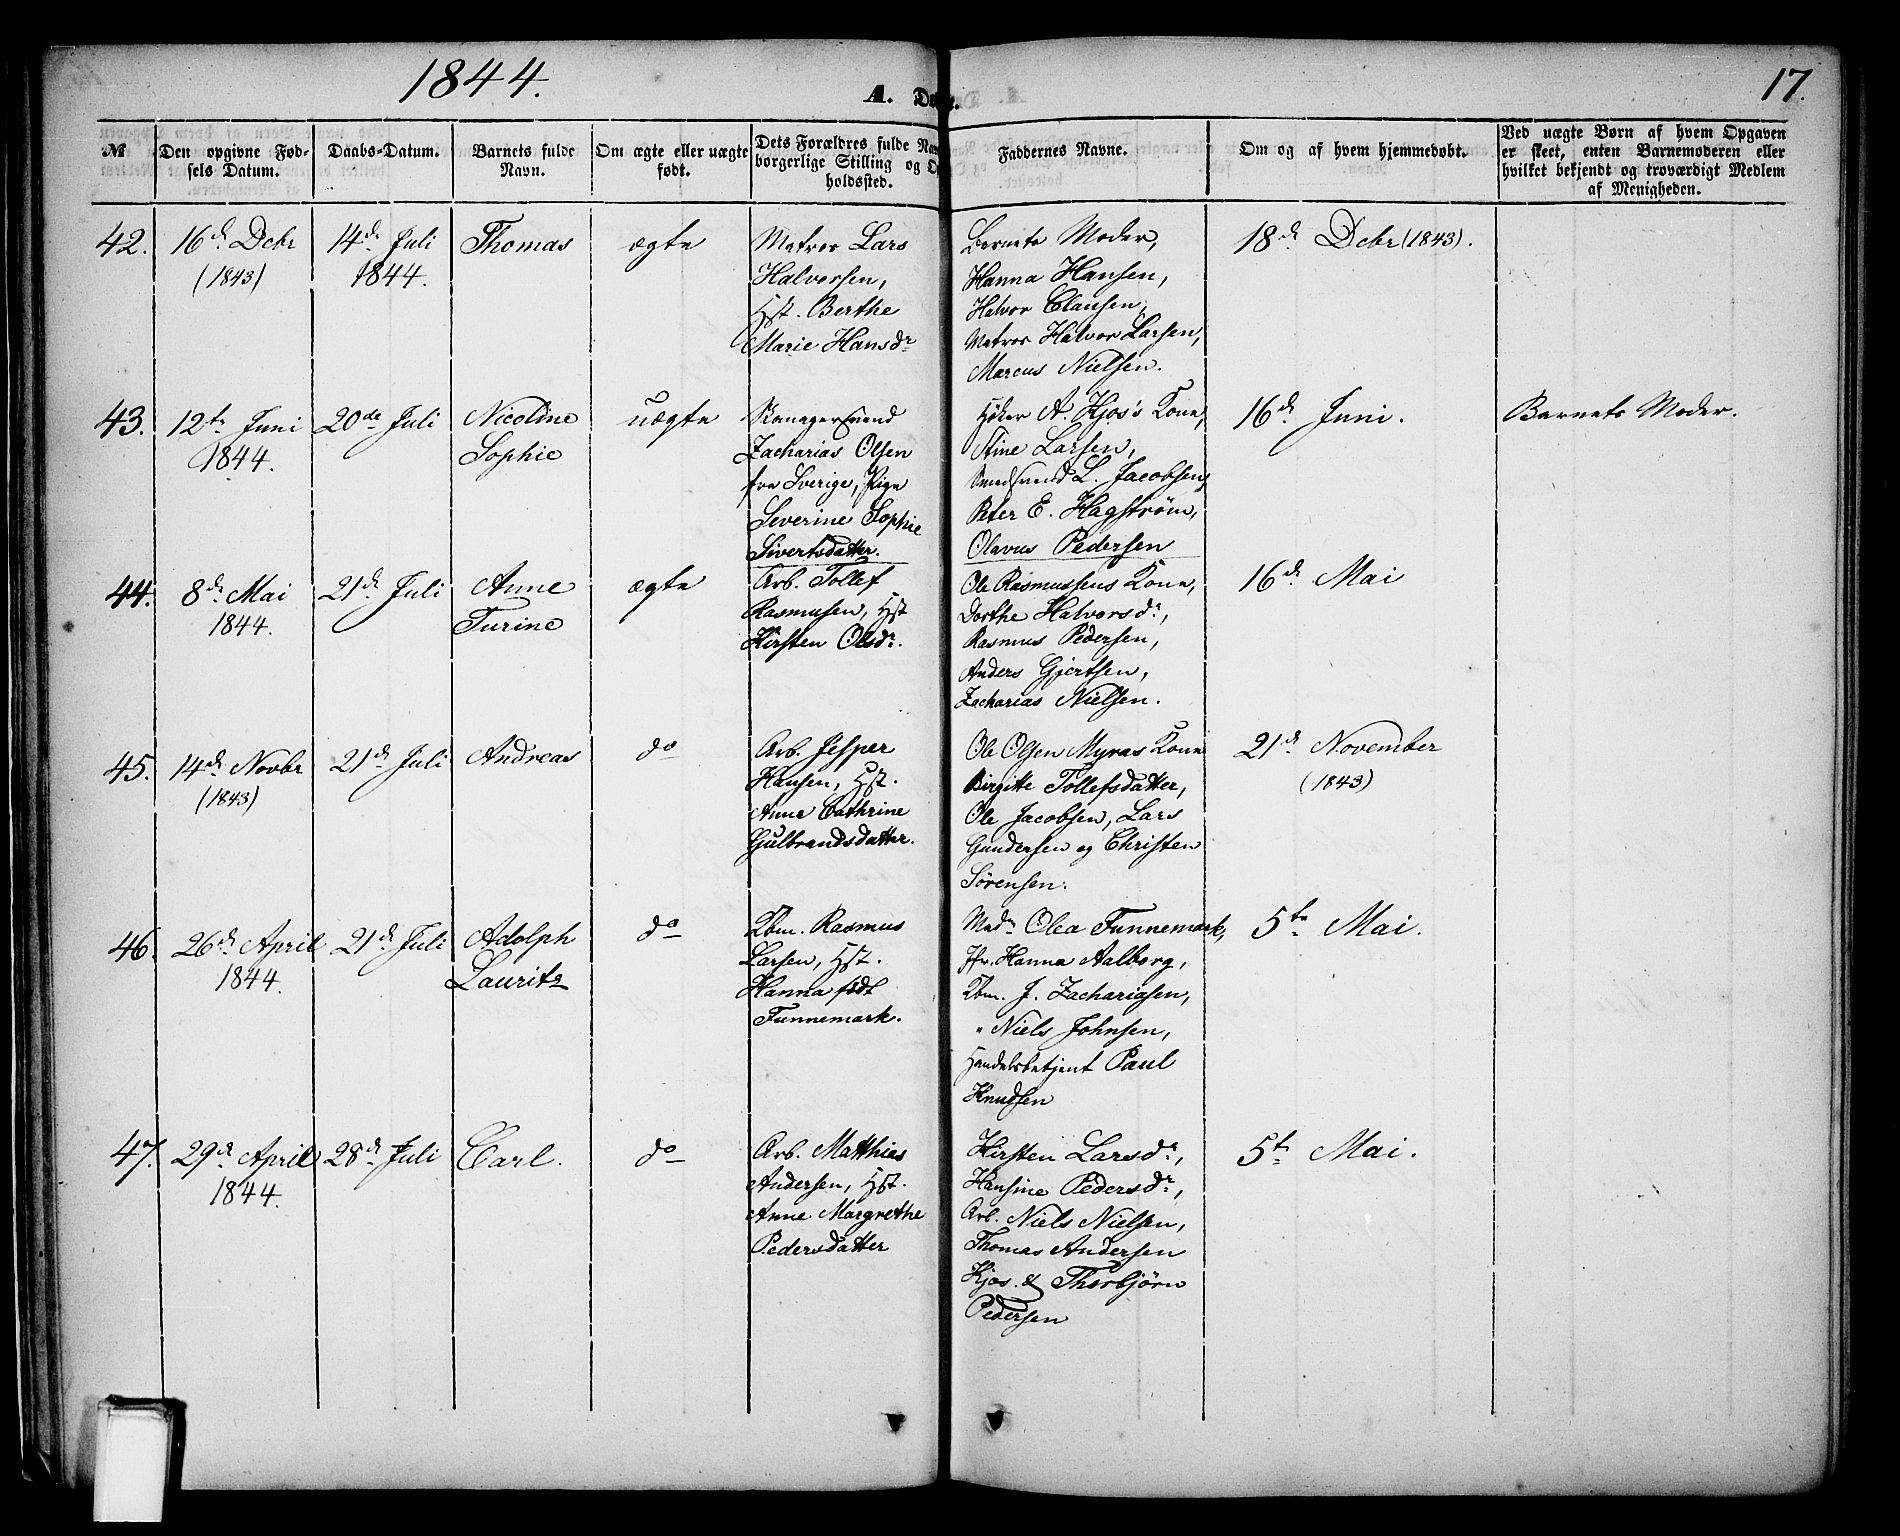 1844.
A. Døbte.
17.
№
Den opgivne Fødsels Datum.
Daabs-Datum.
Barnets fulde Navn.
Om ægte eller uægte født.
Dets Forældres fulde Nav
borgerlige Stilling og O
holdssted.
Faddernes Navne.
Om og af hvem hjemmedøbt.
Ved uægte Børn af hvem Opgaven
er skeet, enten Barnemoderen eller
hvilket bekjendt og troværdigt Medlem
af Menigheden.
42.
16de Debr
(1843)
14de Juli
1844.
Thomas
ægte
Matros Lars
Halvorsen,
Hst. Berthe
Marie Hansdr
Barnets Moder,
Hanna Hansen,
Halvor Clausen,
Matros Halvor Larsen,
Marcus Nielsen.
18de Debr (1843).
43.
12te Juni
1844.
20de Juli
Nicoline
Sophie
uægte
Zacharias Olsen
fra Sverige, Pige
Severine Sophie
Sivertsdatter.
Høker A Kjos's Kone,
Stine Larsen,
L. Jacobsen,
Peter E. Hagstrøm,
Olavus Pedersen
16de Juni.
Barnets Moder.
44.
8de Mai
1844.
21de Juli
Anne
Turine
ægte
Arb. Tollef
Rasmusen, Hst
Kirsten Olsdr.
Ole Rasmussens Kone,
Dorthe Halvorsdr,
Rasmus Pedersen,
Anders Gjertsen,
Zacharias Nielsen.
16de Mai
45.
14de Novbr
(1843)
21de Juli
Andreas
do
Arb. Jesper
Hansen, Hst.
Anne Cathrine
Gulbrandsdatter.
Ole Olsen Myras Kone
Birgitte Tollefsdatter,
Ole Jacobsen, Lars
Gundersen og Christen
Sörensen.
21de November
(1843)
46.
26de April
1844.
21de Juli
Adolph
Laurits
do
Kbm. Rasmus
Larsen, Hst.
Hanna født
Funnemark.
Madm Olea Funnemark,
Jfr. Hanna Aalborg,
Kbm. J. Zachariasen,
" Niels Johnsen,
Handelsbetjent Paul
Knudsen
5te Mai.
47.
29de April
1844.
28de Juli
Carl.
do
Arb. Matthias
Andersen, Hst.
Anne Margrethe
Pedersdatter
Kirsten Larsdr,
Hansine Pedersdr,
Arb. Niels Nielsen,
Thomas Andersen
Kjos. & Thorbjörn
Pedersen
5te Mai.